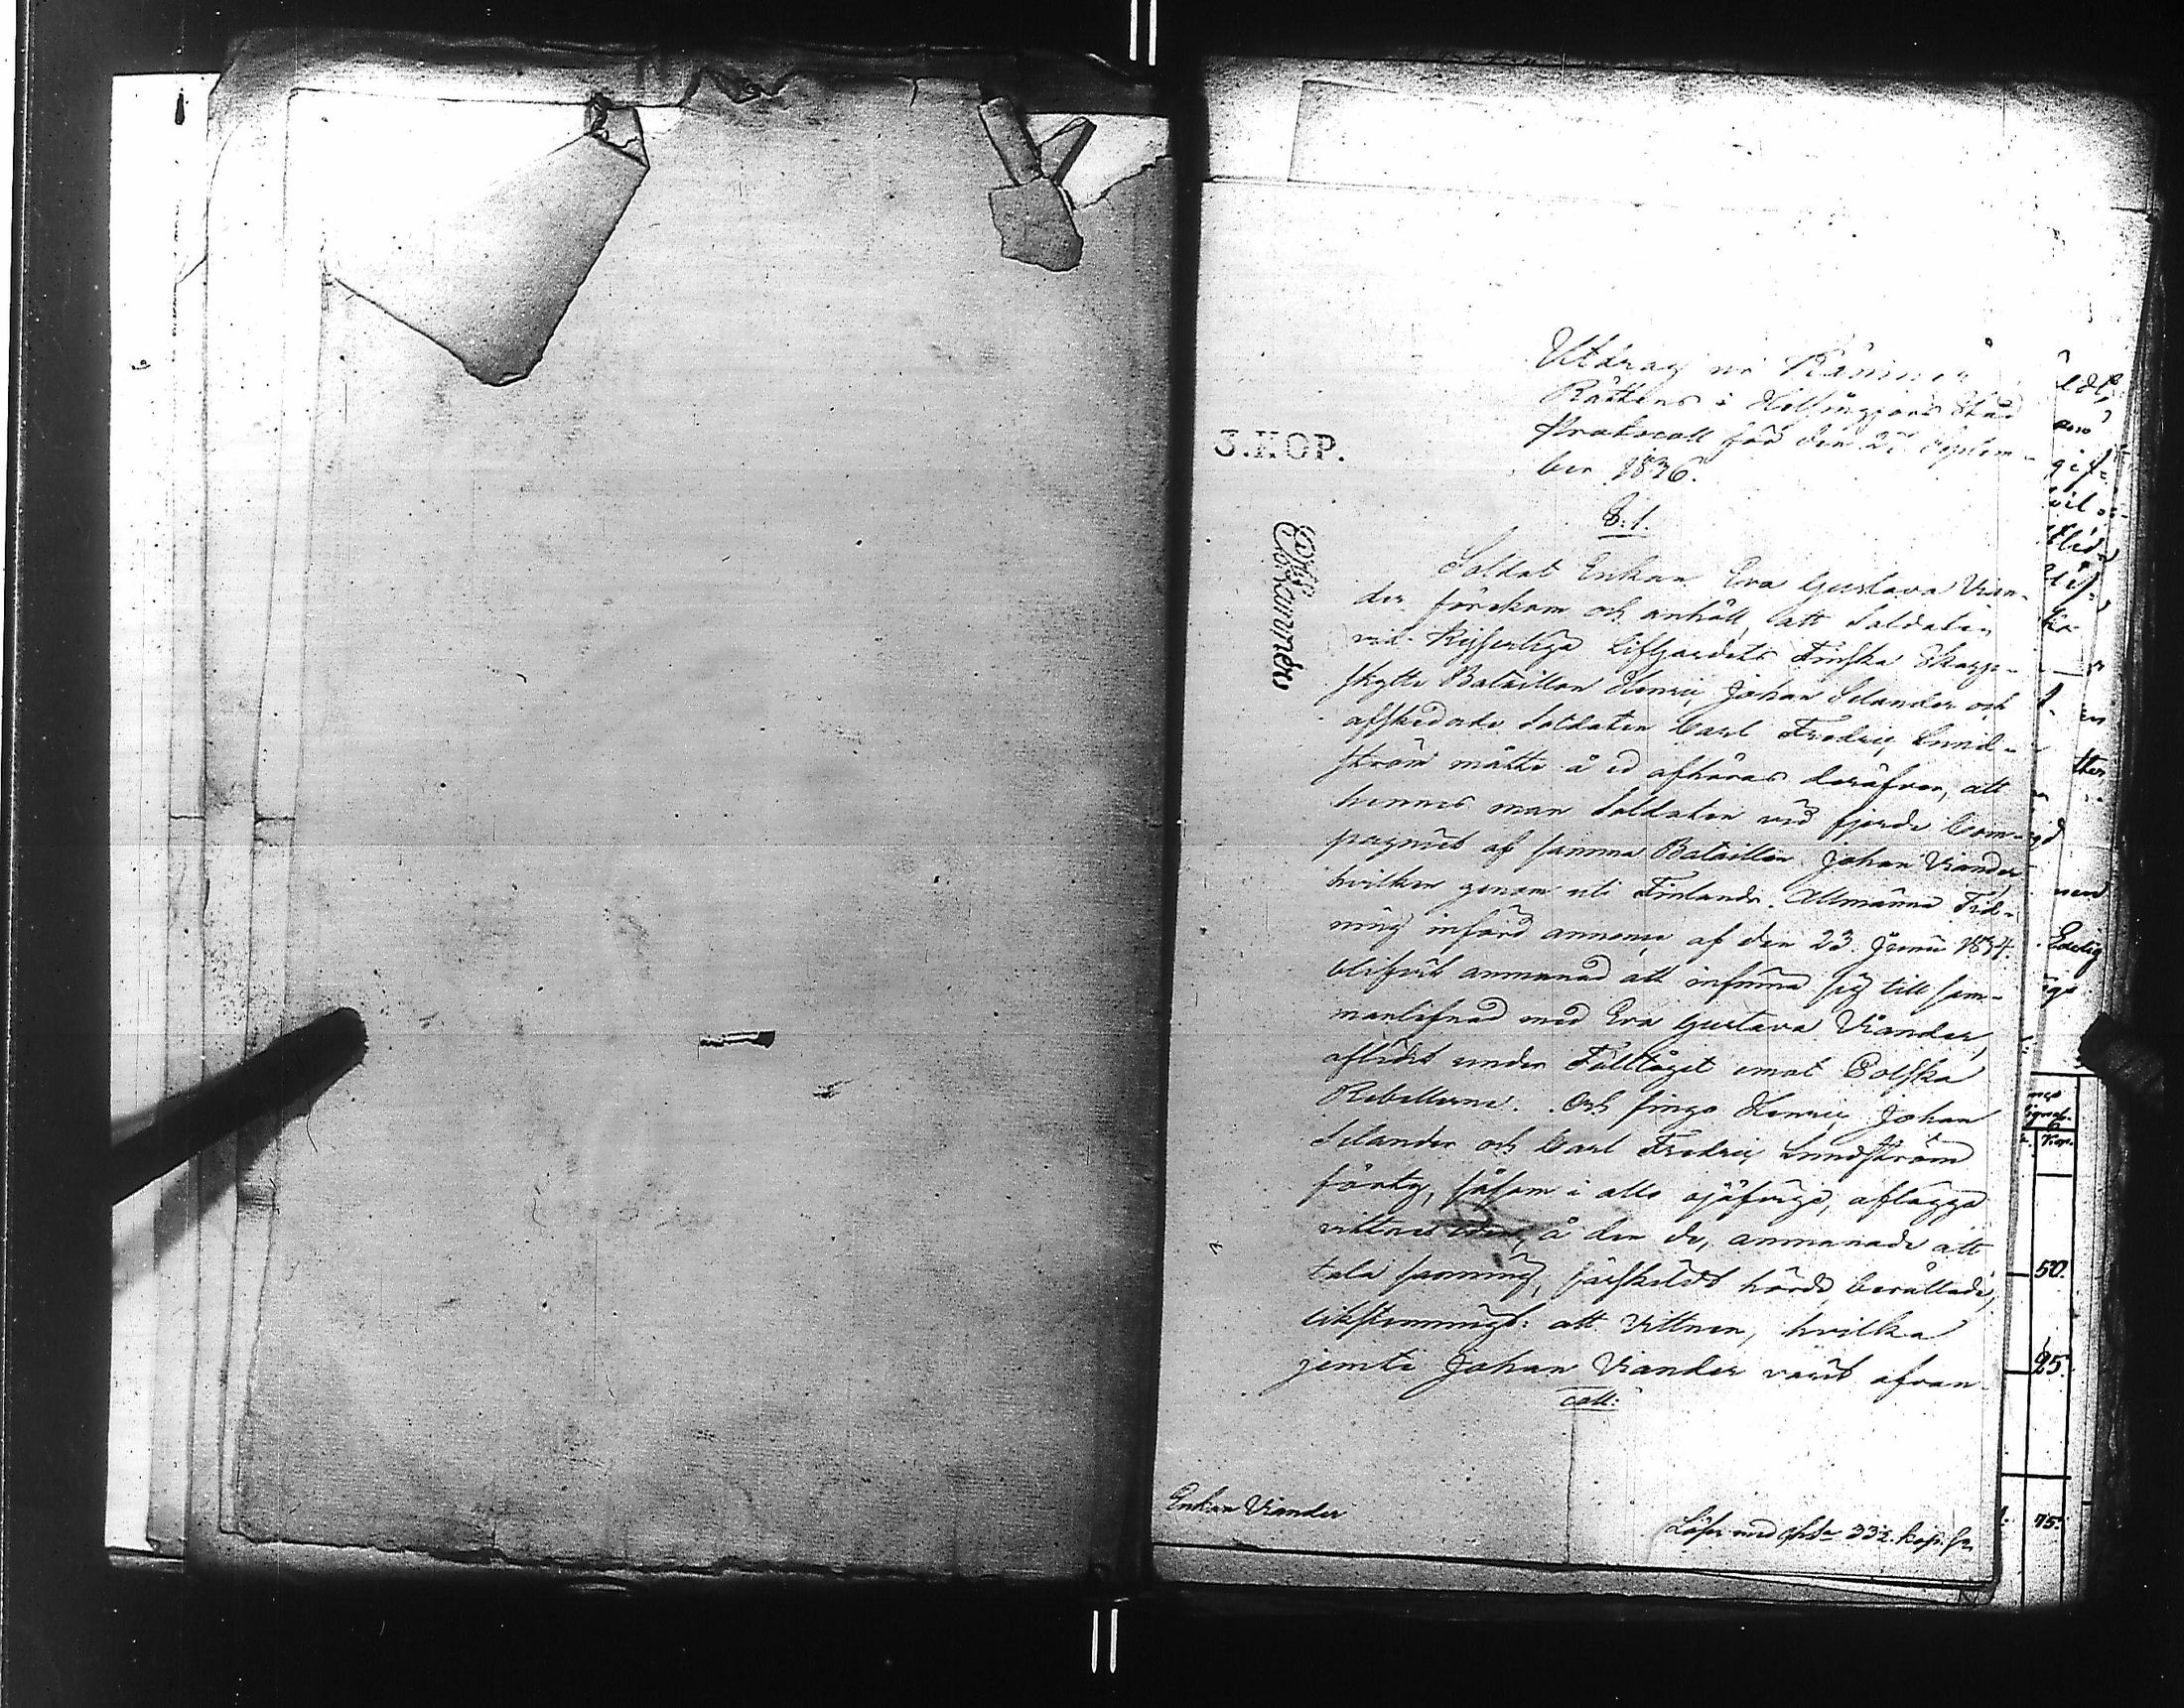 Utdrag ur Kämners
Rättens i Helsingfors Stad
Protocoll för den 27 Septem-
ber 1836.
3. KOP.
§. 1.
Soldat Enkan Eva Gustava Vian-
der förekom och anhöll, att Soldaten
vid Kejserliga Lifgardets Finska Skarp-
skytte Bataillon Henric Johan Selander och
afskedade Soldaten Carl Fredric Lund-
ström måtte å ed afhöras deröfver, att
hennes man Soldaten vid fjerde Com-
pagniet af samma Bataillon Johan Viander
hvilken genom uti Finlands Allmänna Tid-
ning införd annonce af den 23 Junii 1834.
blifvit anmanad att infinna sig till sam-
manlefnad med Eva Gustava Viander,
aflidit under Fälttåget emot Polska
Rebellerne. Och fingo Henric Johan
Selander och Carl Fredric Lundström
förty, såsom i allo ojäfvige, aflägga
vittnes eden, å den de, anmanade att
tala sanning, särskildt hörde, berättade,
likstemmigt: att Vittnen, hvilka
jemte Johan Viander varit afcon-
Enkan Viander
Löser med 33½ kop. Sr
50.
25.
75.